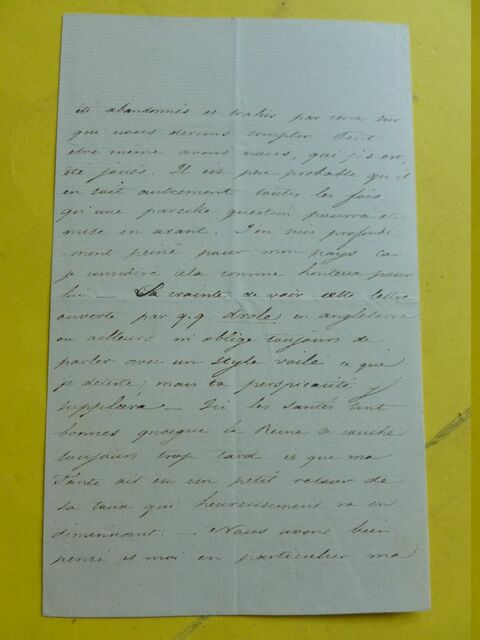 été abandonnés et trahis par ceux sur
qui nous devions compter Peut
etre meme avons nous, que
été joués. Il est peu probable qu'il
en soit autrement toutes les fois
qu'une pareille question pourra etre
mise en avant. J'en suis profonde-
ment peiné pour mon pays car
je considère cela comme honteux pour
lui — La crainte de voir cette lettre
ouverte par q.q. drole en angleterre
ou ailleurs m'oblige toujours de
parler avec un style voilé ce que
je deteste; mais ta perspicacité y
suppléera — Ici les santés sont
bonnes quoique la Reine se couche
toujours trop tard et que ma
Tante ait eu un petit retour de
sa toux qui heureusement va en
diminuant. — Nous avons bien
pensé et moi en particulier ma